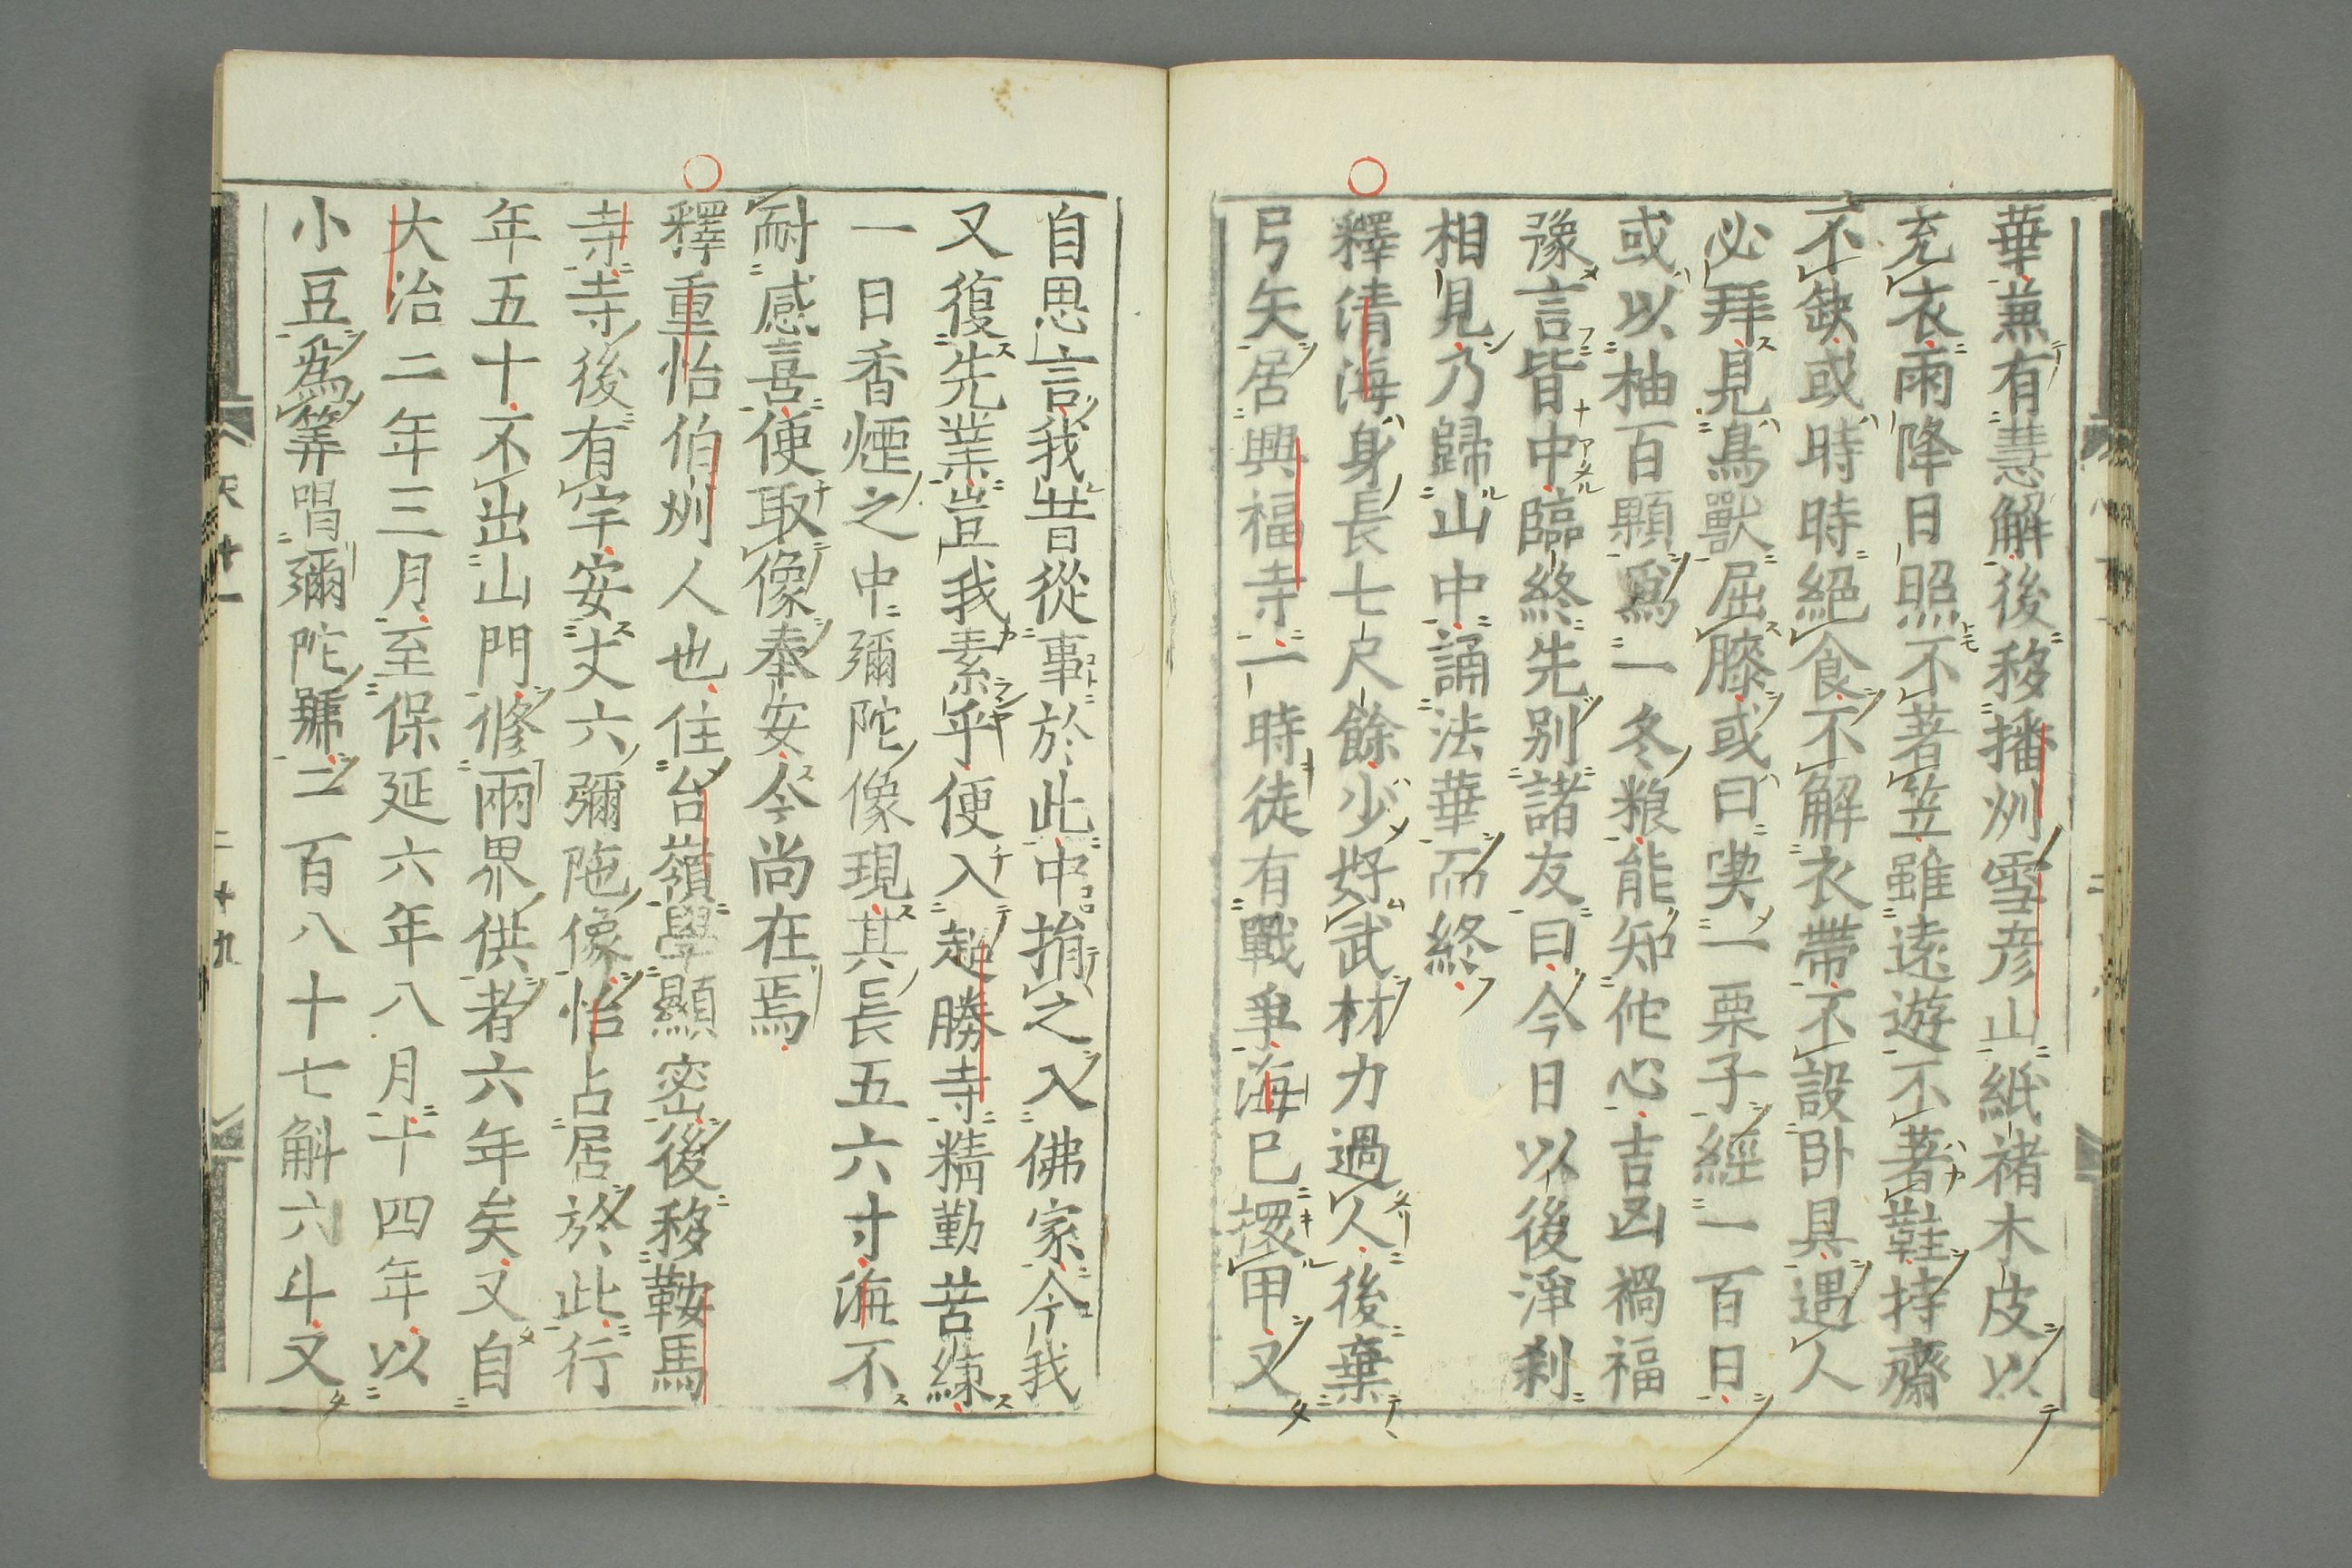 華兼有慧解後移播州雪彦山紙褚木皮以
充衣雨降日照不著笠雖遠遊不著鞋持齋
不缺或時時絕食不解衣帶不設卧具遇人
必拜見鳥獸屈膝或曰喫一栗子經一百日
或以柚百顆爲一冬粮能知佗心吉凶禍福
豫言皆中臨終先別諸友曰今日以後淨刹
相見乃歸山中誦法華而終
釋清海身長七尺餘少好武材力過人後棄
弓矢居興福寺一時徒有戰爭海已擐甲又
自思言我昔從事於此中捎之入佛家今我
又復先業豈我素乎便入超勝寺精勤苦練
一日香煙之中彌陀像現其長五六寸海不
耐感喜便取像奉安今尚在焉
釋重怡伯州人也住台嶺學顯密後移鞍馬
寺寺後有宇安丈六彌陁像怡占居於此行
年五十不出山門修兩界供者六年矣又自
大治二年三月至保延六年八月十四年以
小豆爲筭唱彌陀號二百八十七斛六斗又
二十九